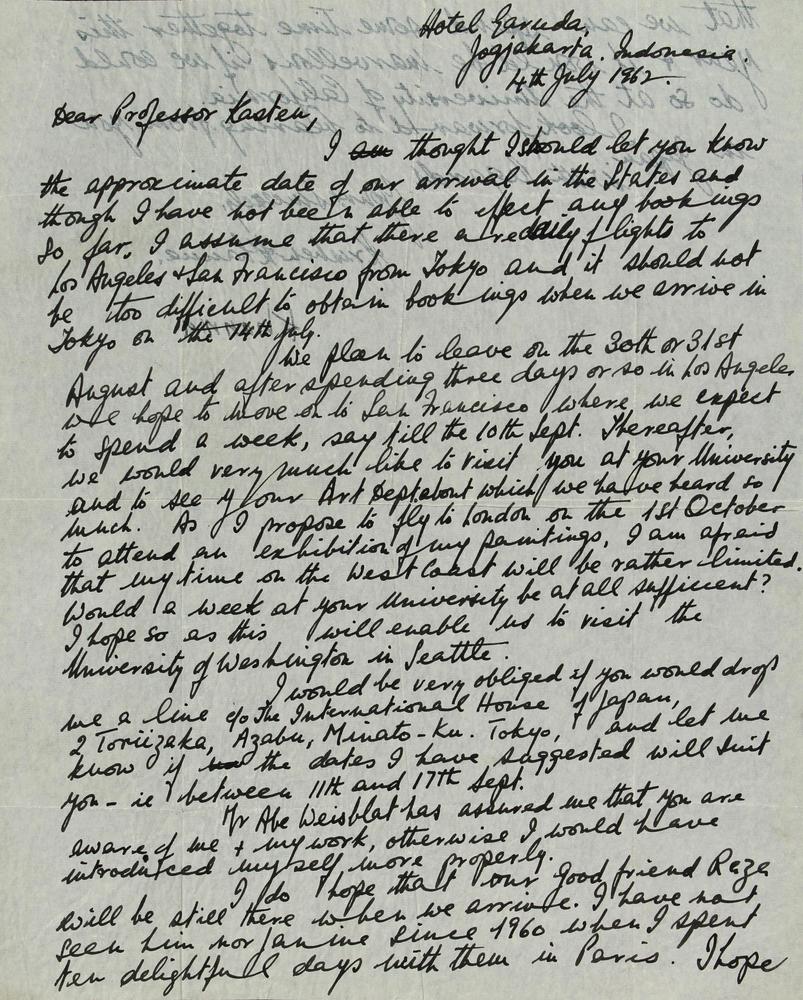 Hotel Garuda,
Jogjakarta. Indonesia.
4th July 1962.
Dear Professor Kasten,
I am thought I should let you know
the approximate date of our arrival in the States and
though I have not been able to effect any bookings
so far, I assume that there are daily flights to
Los Angeles & San Francisco from Tokyo and it should not
be too difficult to obtain bookings when we arrive in
Tokyo on the 14th July.
We plan to leave on the 30th or 31st
August and after spending three days or so in Los Angeles
we hope to move on to San Francisco where we expect
to spend a week, say till the 10th Sept. Thereafter,
we would very much like to visit you at your University
and to see your Art Dept about which we have heard so
much. As I propose to fly to London on the 1st October
to attend an exhibition of my paintings, I am afraid
that my time on the West Coast will be rather limited.
Would a week at your University be at all sufficient?
I hope so as this will enable us to visit the
University of Washington in Seattle.
I would be very obliged if you would drop
me a line c/o The International House of Japan,
2 Toriizaka, Azabu, Minato-Ku. Tokyo, and let me
know if the dates I have suggested will suit
you - ie between 11th and 17th Sept.
Mr Abe Weisblat has assured me that you are
aware of me + my work, otherwise I would have
introduced myself more properly.
I do hope that our good friend Raza
will be still there when we arrive. I have not
seen him nor Janine since 1960 when I spent
ten delightful days with them in Paris. I hope